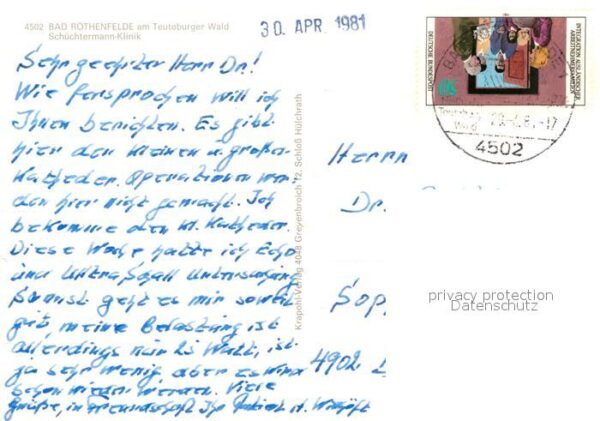 4502 BAD ROTHENFELDE am Teutoburger Wald
Schüchtermann-Klinik
30. APR. 1981
Sehr geehrter Herr Dr.!
Wie fersprochen will ich
Ihnen berichten. Es gibt
hier den kleinen u. großen
Katheder. Operationen wer-
den hier nicht gemacht. Ich
bekomme den kl. Katheder.
Diese Woche hatte ich Echo
und Ultraschall Untersuchung
Sonst geht es mir soweit
gut, meine Belastung ist
allerdings nur 25 Watt, ist
ja sehr wenig aber es wird
schon wieder werden. Viele
Grüße, in Freundschaft Ihr Patient H.
Krapohl-Verlag 4048 Grevenbroich 12, Schloß Hülchrath
INTEGRATION AUSLÄNDISCHER
ARBEITNEHMERFAMILIEN
DEUTSCHE BUNDESPOST
50
Teutobg.
Wald
29.-4.81-17
4502
Herrn
Dr.
Sop
4902
privacy protection
Datenschutz